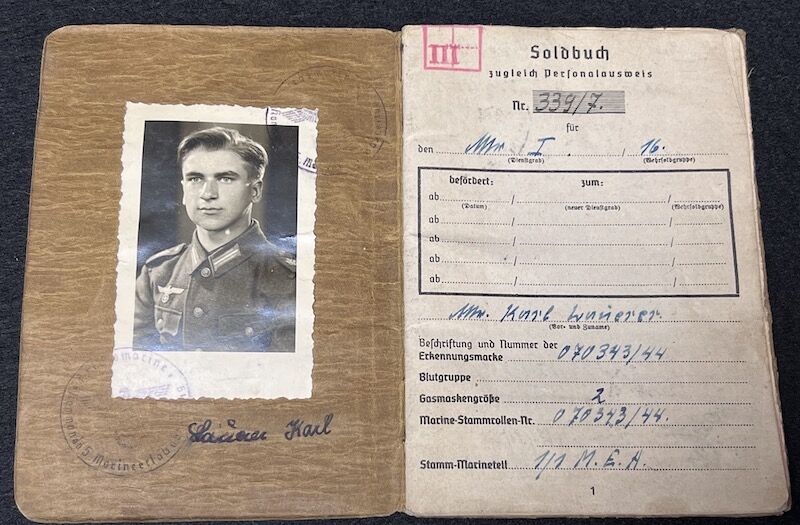 Lauerer Karl
III
Soldbuch
zugleich Personalausweis
Nr. 339/7.
für
den Mtr I. / 16.
(Dienstgrad) (Wehrsoldgruppe)
befördert: zum:
ab / /
(Datum) (neuer Dienstgrad) (Wehrsoldgruppe)
ab / /
ab / /
ab / /
ab / /
Mtr. Karl Lauerer.
(Vor- und Zuname)
Beschriftung und Nummer der
Erkennungsmarke 070343/44
Blutgruppe
Gasmaskengröße 2
Marine-Stammrollen-Nr. 070343/44.
Stamm-Marineteil 1/1 M.E.A.
1